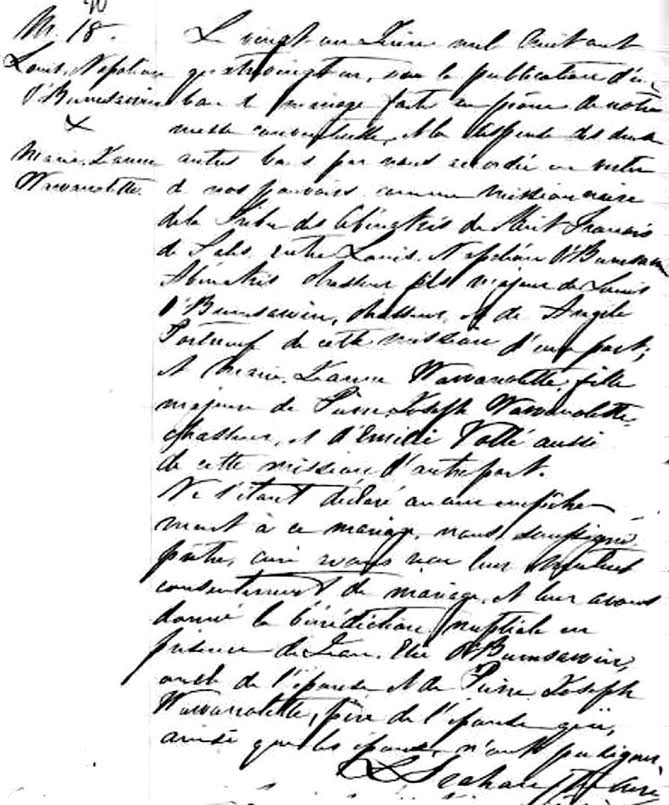 M. 18.
Louis, Napoléon
O'Bumsawin
X
Marie, Jeanne
Wawanolette.
Le vingt un Juin mil huit cent
quatrevingt un, vu la publication d'un
ban de mariage faite au prône de notre
messe conventuelle, et la dispense des deux
autres bans par nous accordée en vertu
de nos pouvoirs comme missionnaire
de la Tribu des Abénakis de Saint François
de Sales, entre Louis, Napoléon O'Bumsawin
Abénakis chasseur fils majeur de Louis
O'Bumsawin, chasseur, et de Angèle
Portneuf de cette mission d'une part;
et Marie, Jeanne Wawanolette, fille
majeure de Pierre Joseph Wawanolette,
chasseur, et d'Emilie Tollé aussi
de cette mission d'autre part.
Ne s'étant déclaré aucun empêche-
ment à ce mariage, nous, soussigné
prêtre, curé avons reçu leur mutuel
consentement de mariage, et leur avons
donné la bénédiction nuptiale en
présence de Jean, Elie O'Bumsawin,
oncle de l'épouse et de Pierre Joseph
Wawanolette, père de l'épouse qui,
ainsi que les époux, n'ont pu signer
Ptre Curé